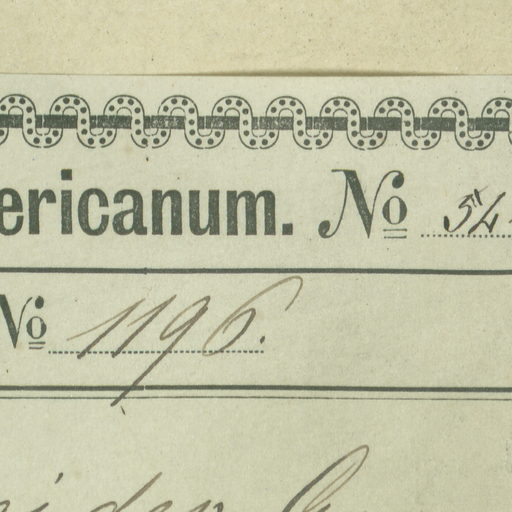 ericanum. No 54
No 1196.